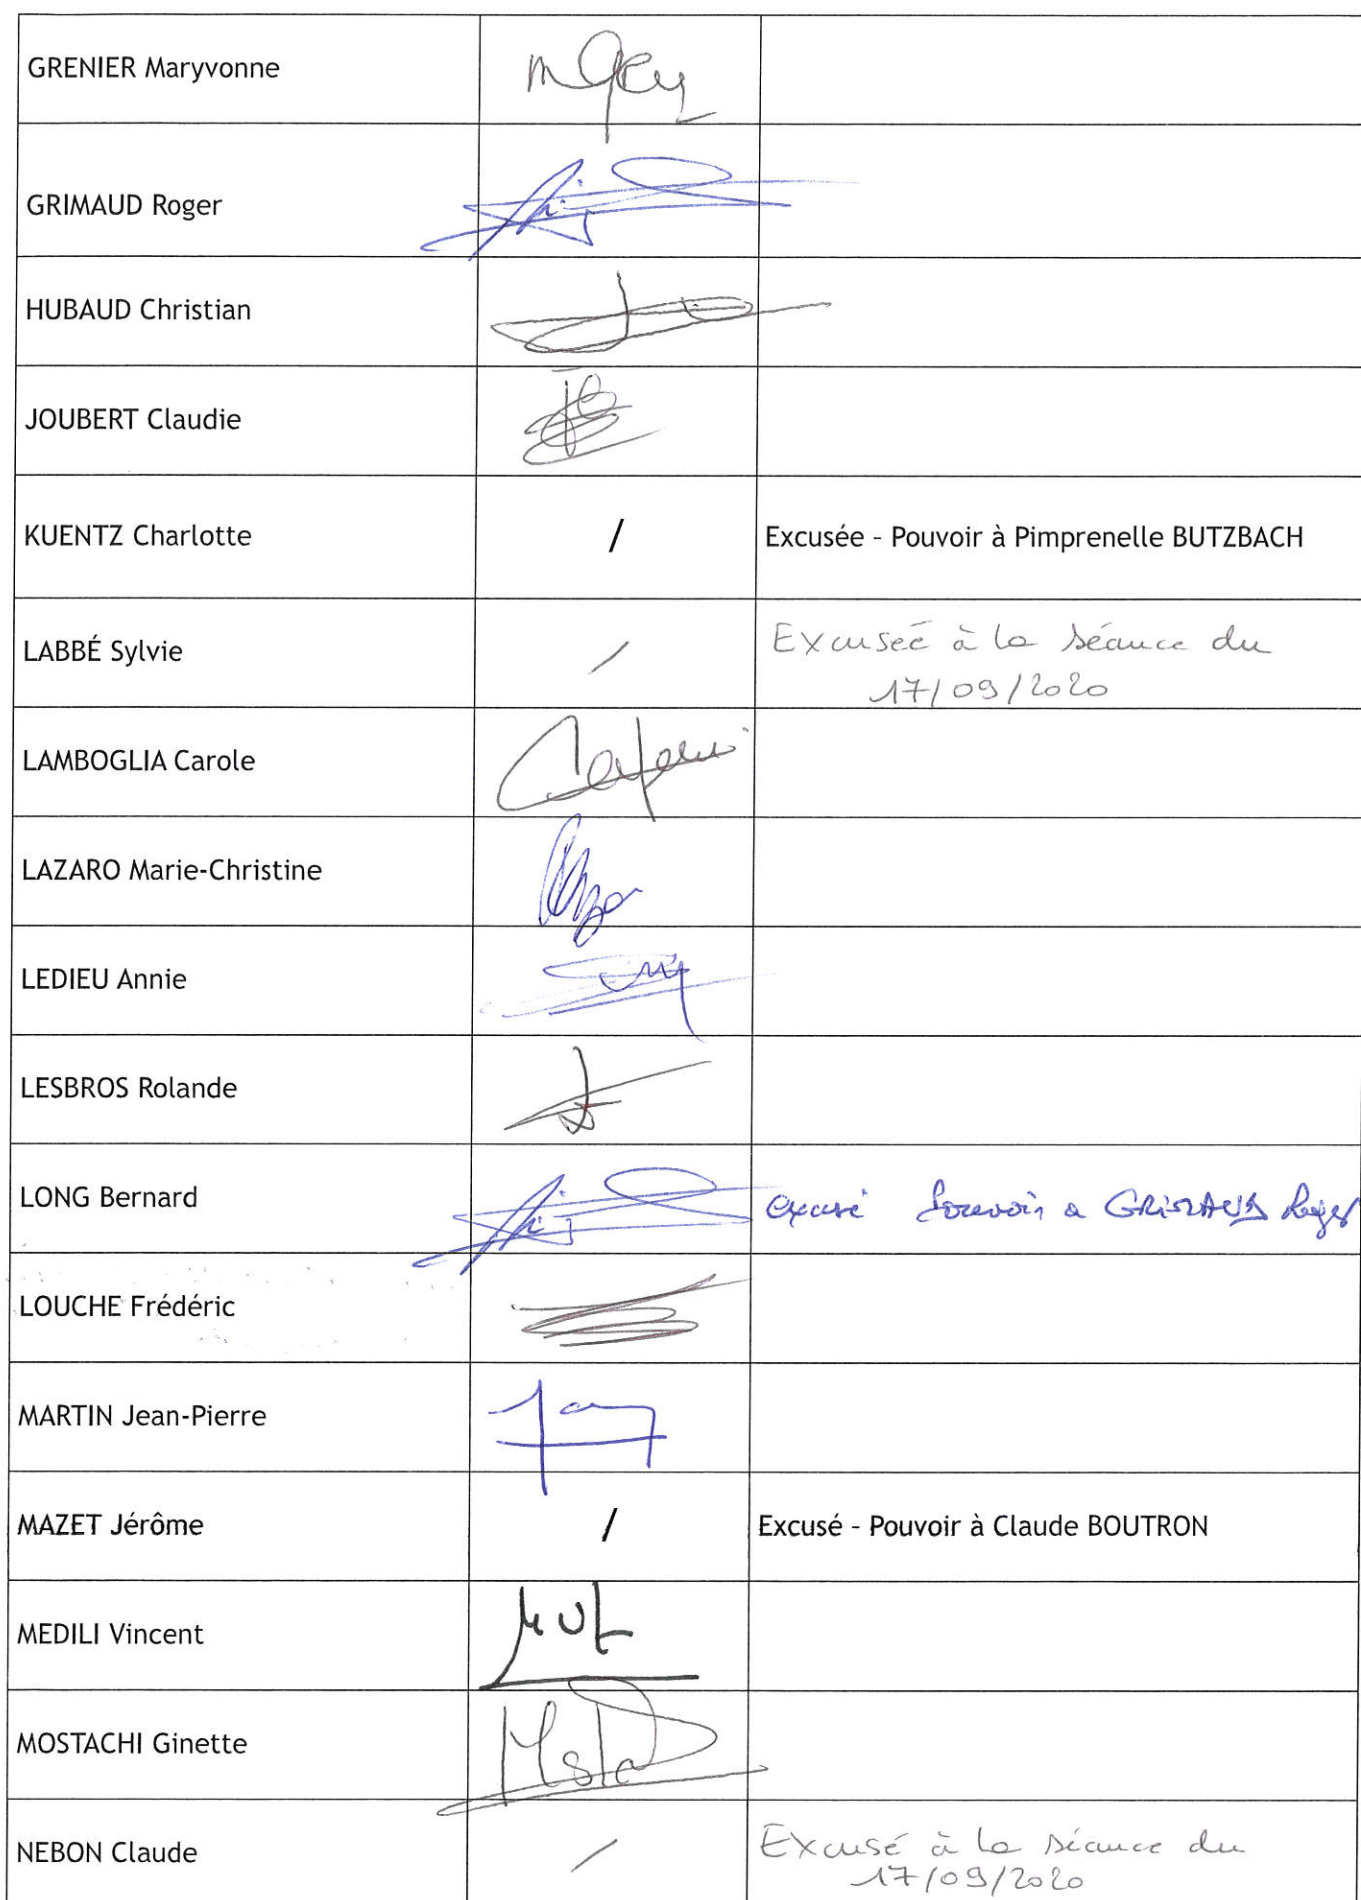 GRENIER Maryvonne
GRIMAUD Roger
HUBAUD Christian
JOUBERT Claudie
KUENTZ Charlotte / Excusée - Pouvoir à Pimprenelle BUTZBACH
LABBÉ Sylvie / Excuseé à la séance du
17/09/2020
LAMBOGLIA Carole
LAZARO Marie-Christine
LEDIEU Annie
LESBROS Rolande
LONG Bernard excusé Pouvoir a GRIMAUD Roger
LOUCHE Frédéric
MARTIN Jean-Pierre
MAZET Jérôme / Excusé - Pouvoir à Claude BOUTRON
MEDILI Vincent
MOSTACHI Ginette
NEBON Claude / Excusé à la séance du
17/09/2020